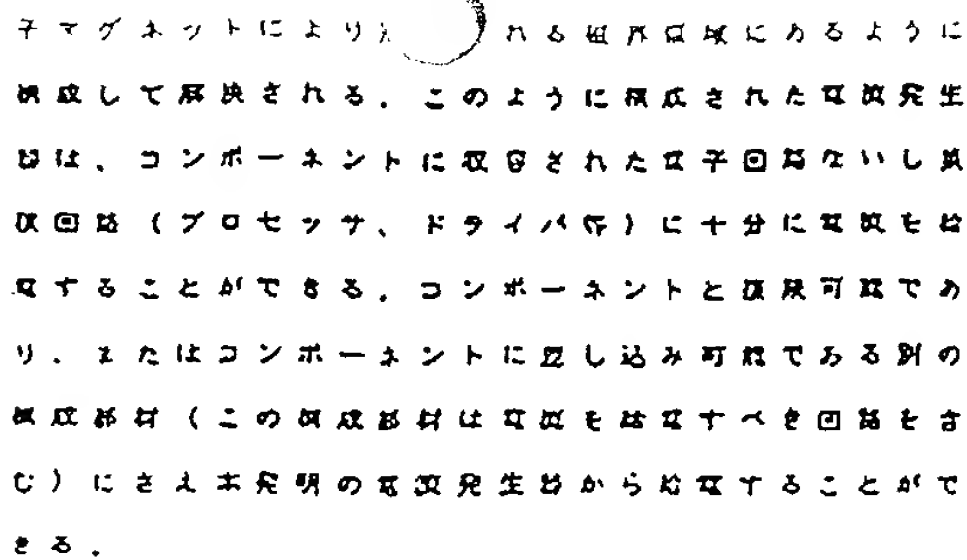 子マグネットにより れる磁界領域にあるように
構成して解決される。このように構成された電流発生
器は、コンポーネントに収容された電子回路ないし集
積回路(プロセッサ、ドライバ等)に十分に電流を給
電することができる。コンポーネントと接続可能であ
り、またはコンポーネントに差し込み可能である別の
構成部材(この構成部材は電流を給電すべき回路をさ
む)にさえ本発明の電流発生器から給電することがで
きる。